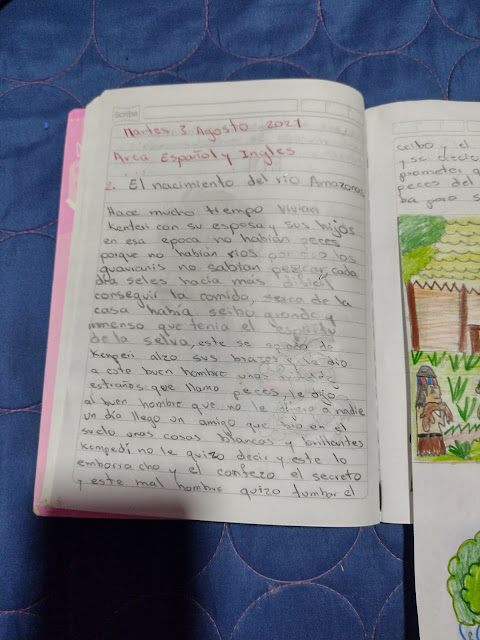 scribe
Martes 3 Agosto 2021
Area Español y Ingles
2. El nacimiento del río Amazonas
Hace mucho tiempo vivian
Kenteri con su esposa y sus hijos
en esa epoca no habian peces
porque no habían ríos por eso los
guavianis no sabian pescar, cada
día seles hacia mas dificil
conseguir la comida, serca de la
casa había seibo grande y
inmenso que tenia el espiritu
de la selva, este se apiado de
kemperi alzo sus brazos y le dio
a este buen hombre unos
estraños que llamo peces, le dijo
al buen hombre que no le dijera a nadie
un día llego un amigo que vio en el
suelo unas cosas blancas y brillantes
kempedí no le quizo decir y este lo
emborra cho y el confezo el secreto
y este mal hombre quizo tumbar el
ceibo y el
y se
prometer q
peces del
ba para s